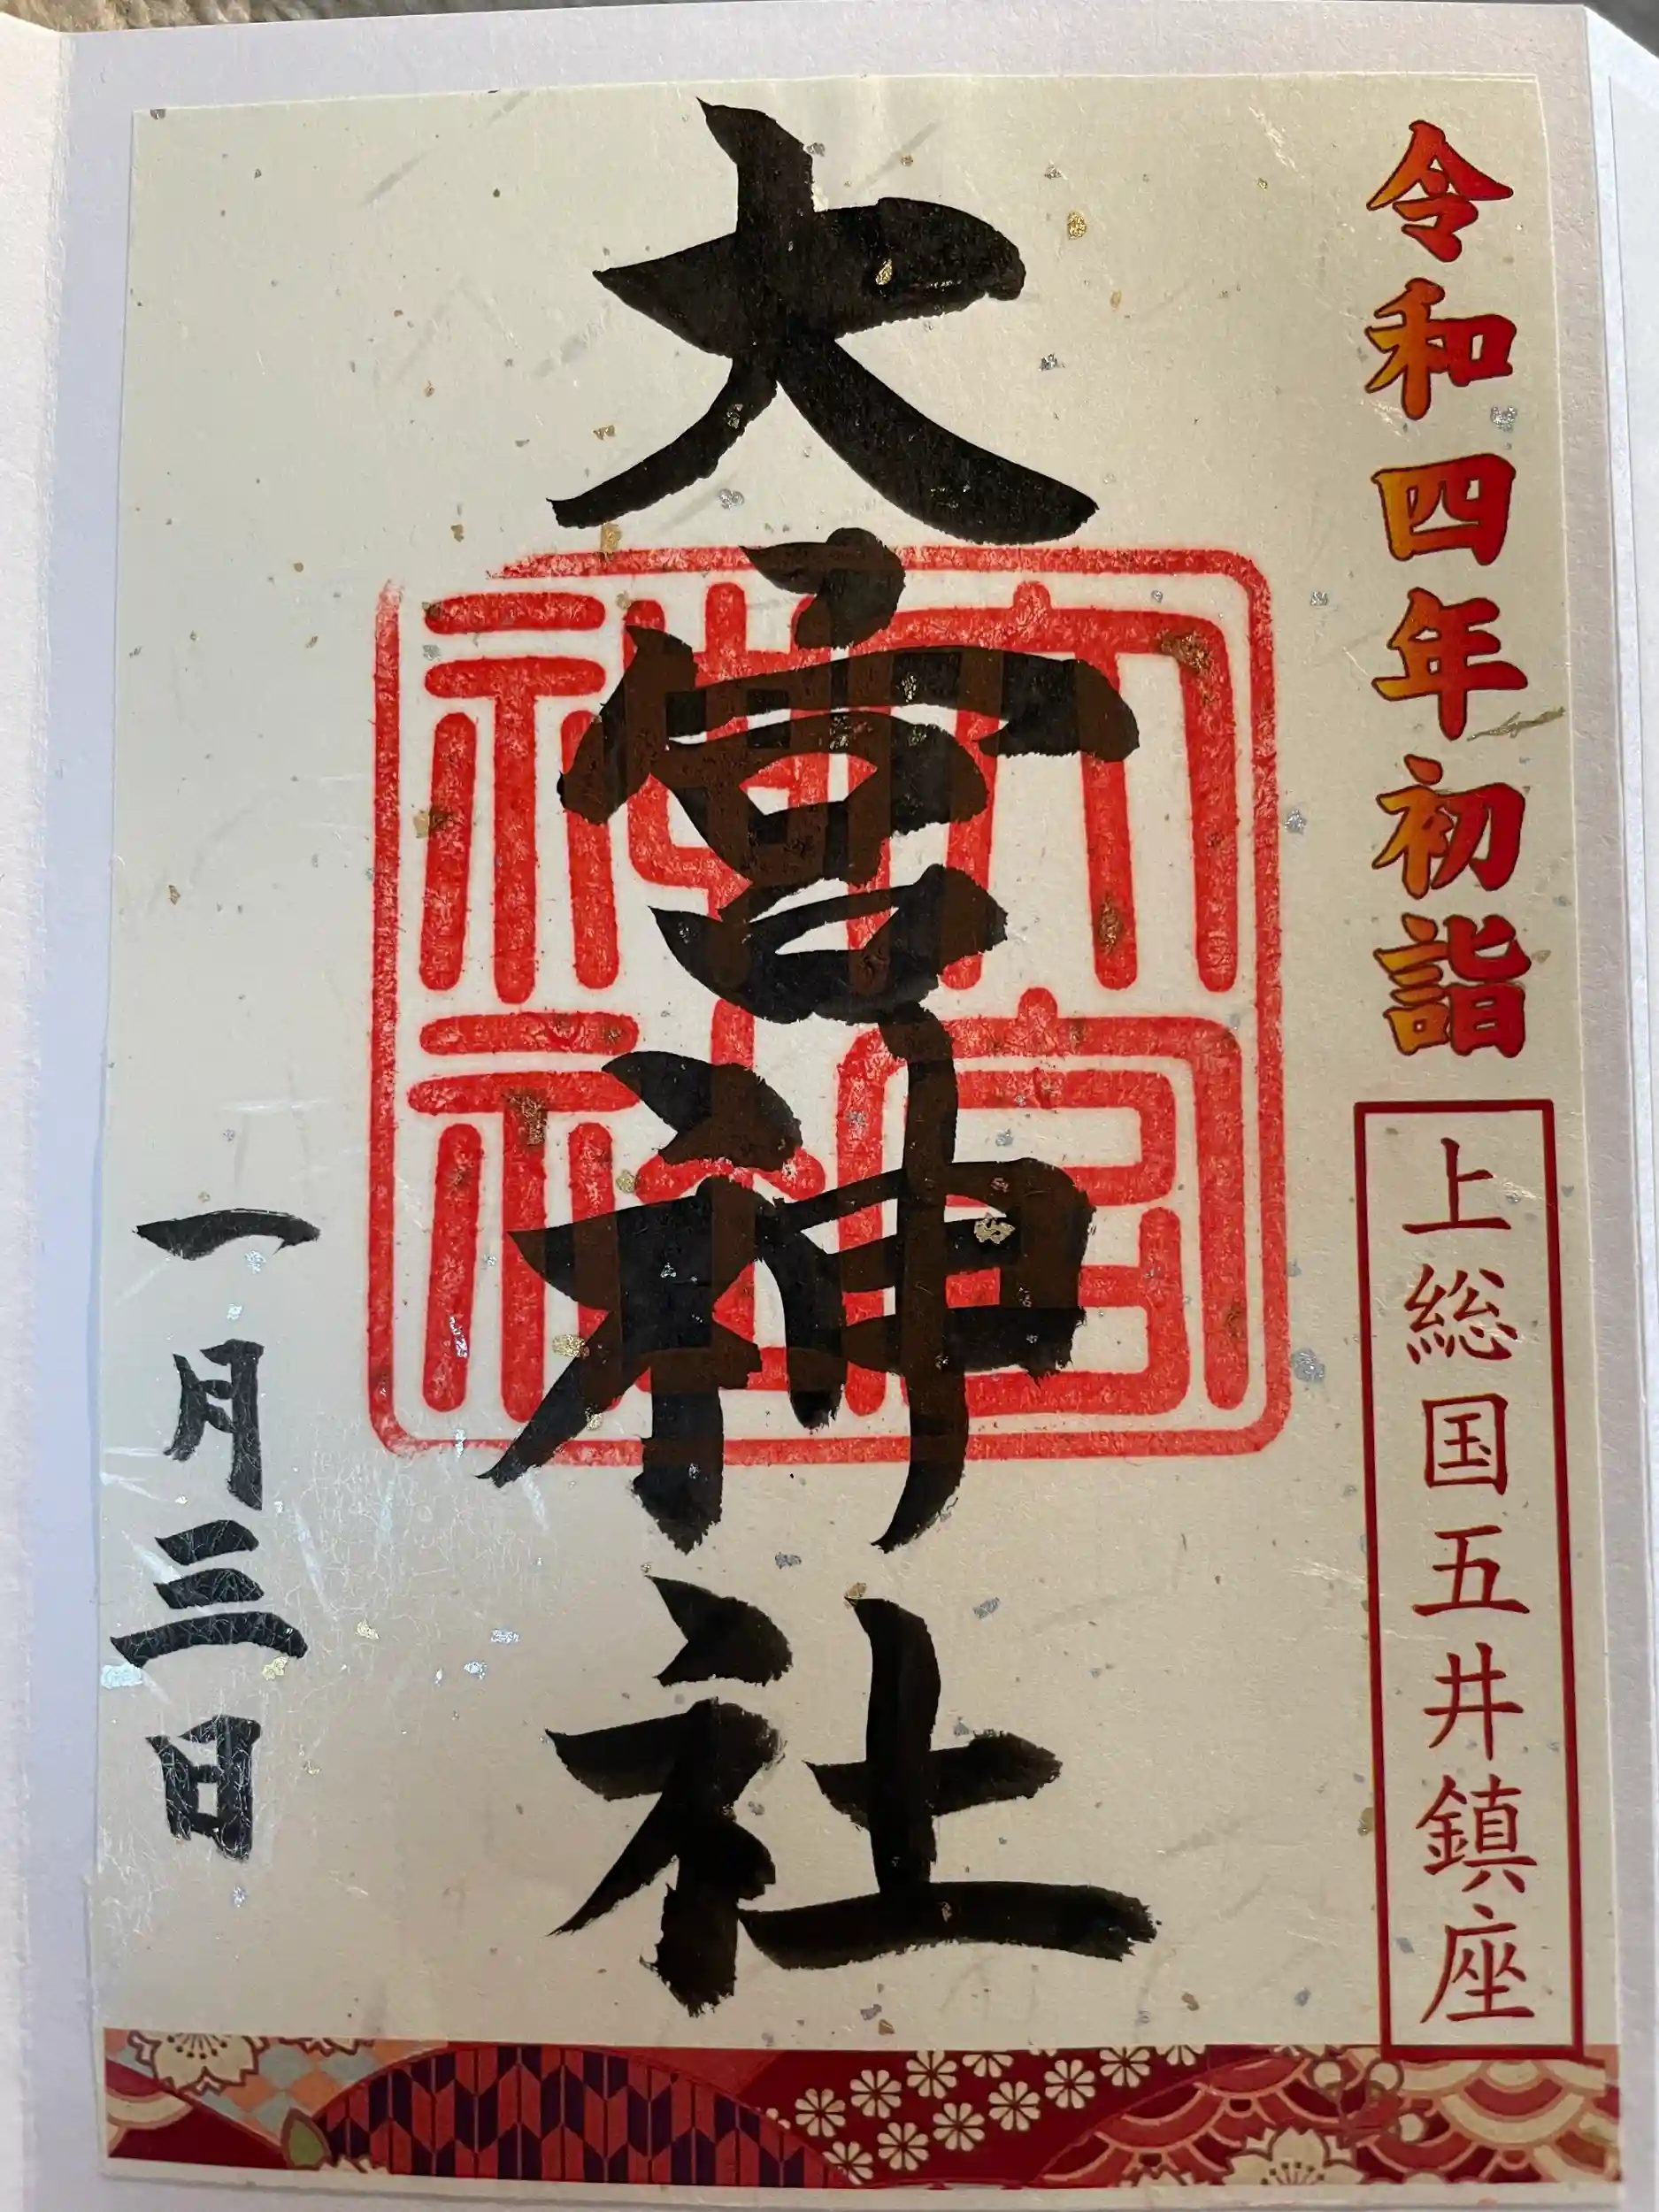 令和四年初詣
上総国五井鎮座
大宮神社
大宮神社
一月三日